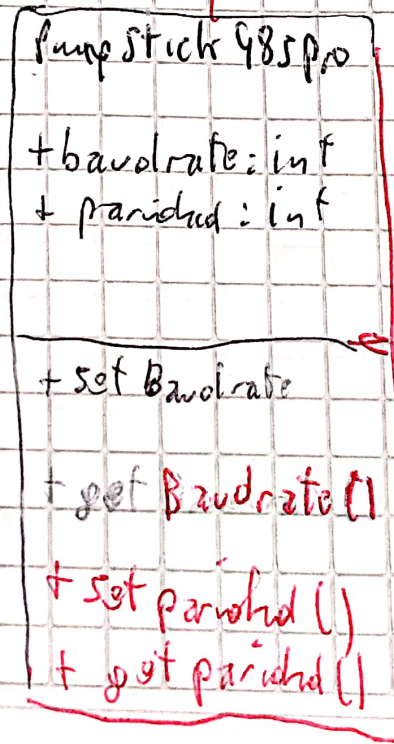 PumpStick485Pro
+ baudrate: int
+ parided: int
+ set Baudrate
+ get Baudrate()
+ set parided()
+ get parided()